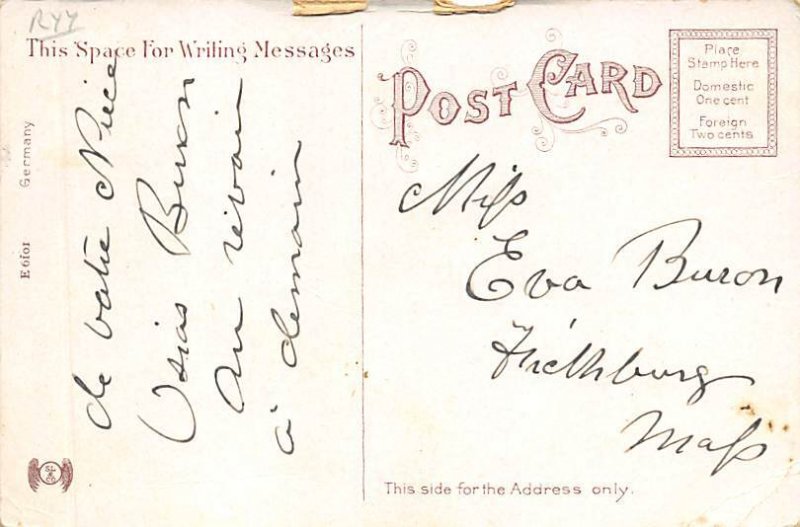 RYY
This Space For Writing Messages
de votre Niece
Osias Buron
Au revoir
à demain
E6101 Germany
SL & Co
POST CARD
Place
Stamp Here
Domestic
One cent
Foreign
Two cents
Miss
Eva Buron
Fitchburg
Mass
This side for the Address only.